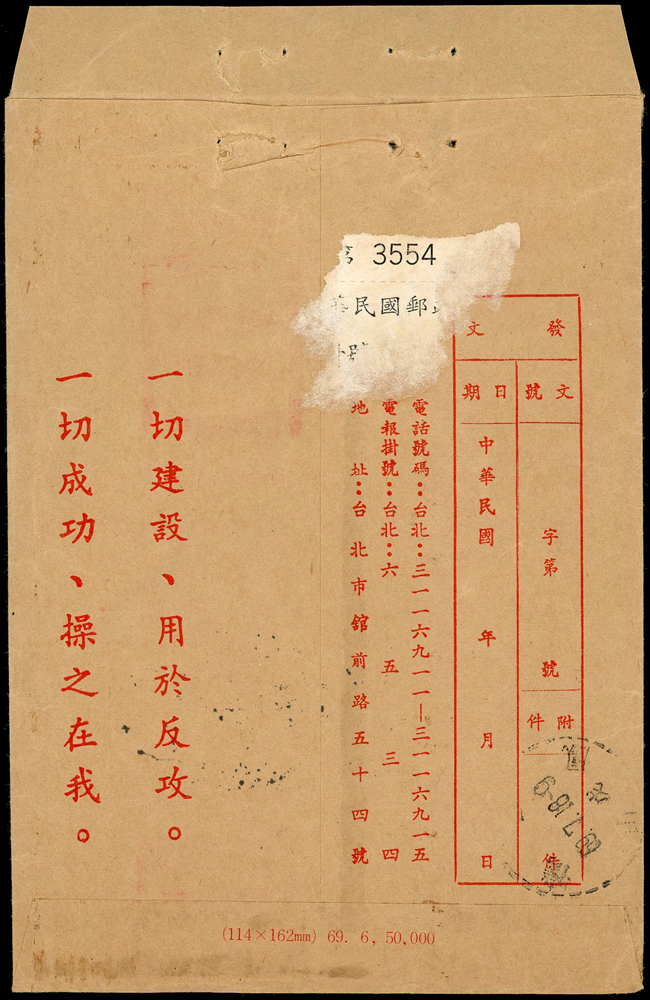 3554
民國郵
發文
文號
字第 號
附件
件
日期
中華民國 年 月 日
電話號碼：台北：三一一六九一一—三一一六九一五
電報掛號：台北：六五三四
地址：台北市館前路五十四號
一切建設、用於反攻。
一切成功、操之在我。
(114×162mm) 69. 6, 50,000